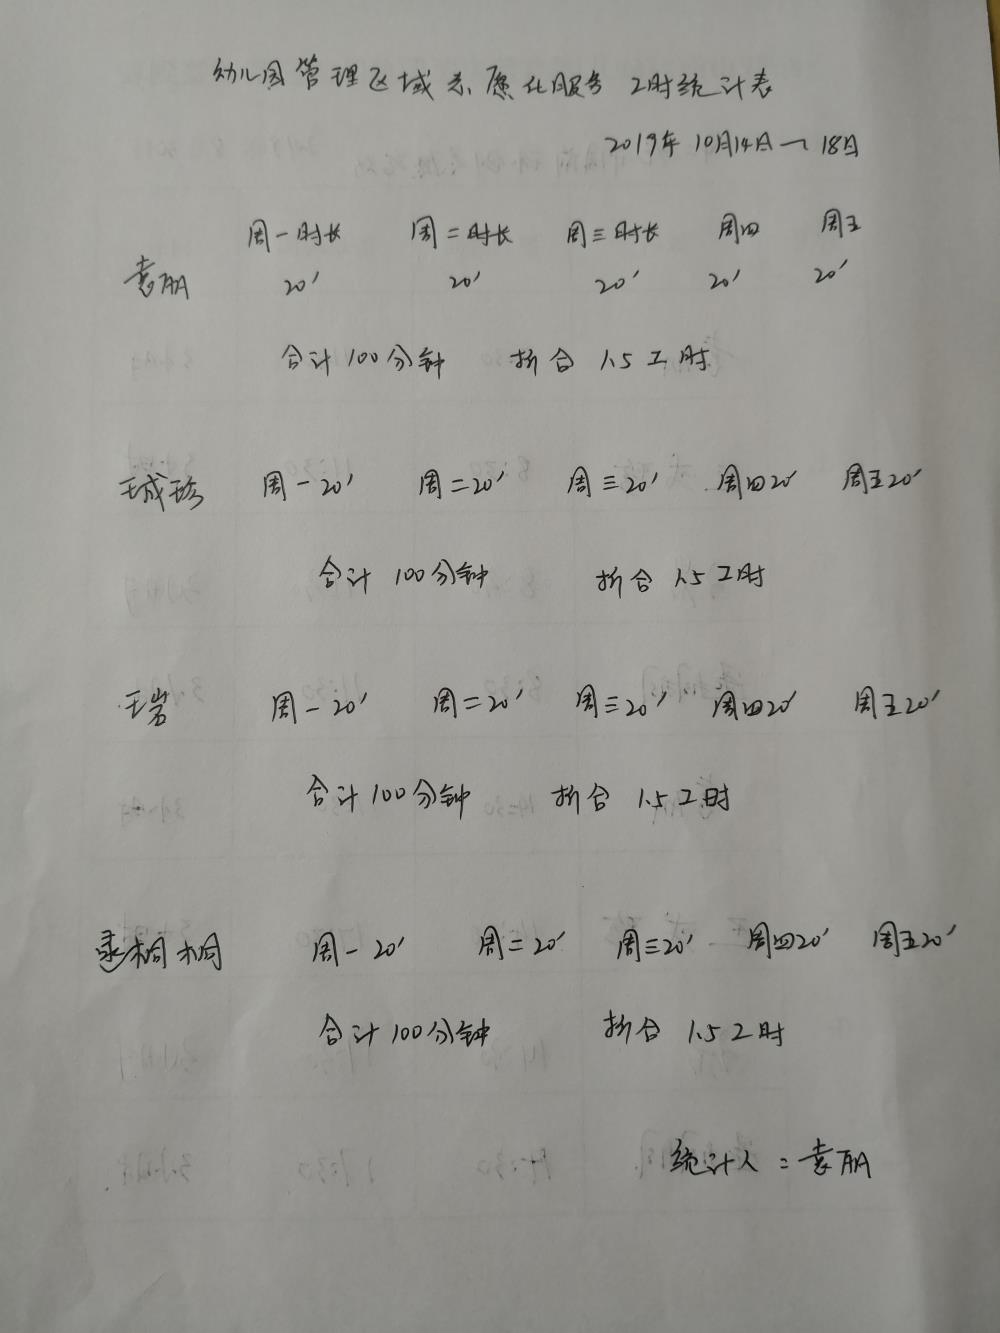 幼儿园管理区域志愿化服务 工时统计表
2019年10月14日一18日
周一时长 周二时长 周三时长 周四 周五
袁丽 20′ 20′ 20′ 20′ 20′
合计100分钟 折合1.5工时
王成珍 周一20′ 周二20′ 周三20′ 周四20′ 周五20′
合计100分钟 折合1.5工时
王岩 周一20′ 周二20′ 周三20′ 周四20′ 周五20′
合计100分钟 折合1.5工时
桐桐 周一20′ 周二20′ 周三20′ 周四20′ 周五20′
合计100分钟 折合1.5工时
统计人:袁丽